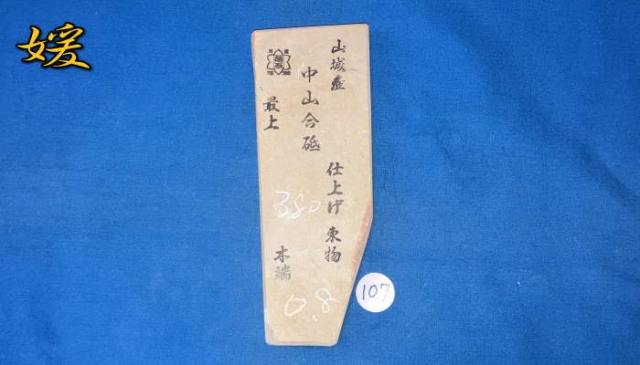 媛
山城産
中山合砥
最上
仕上げ 東物
本端
380
0.8
107